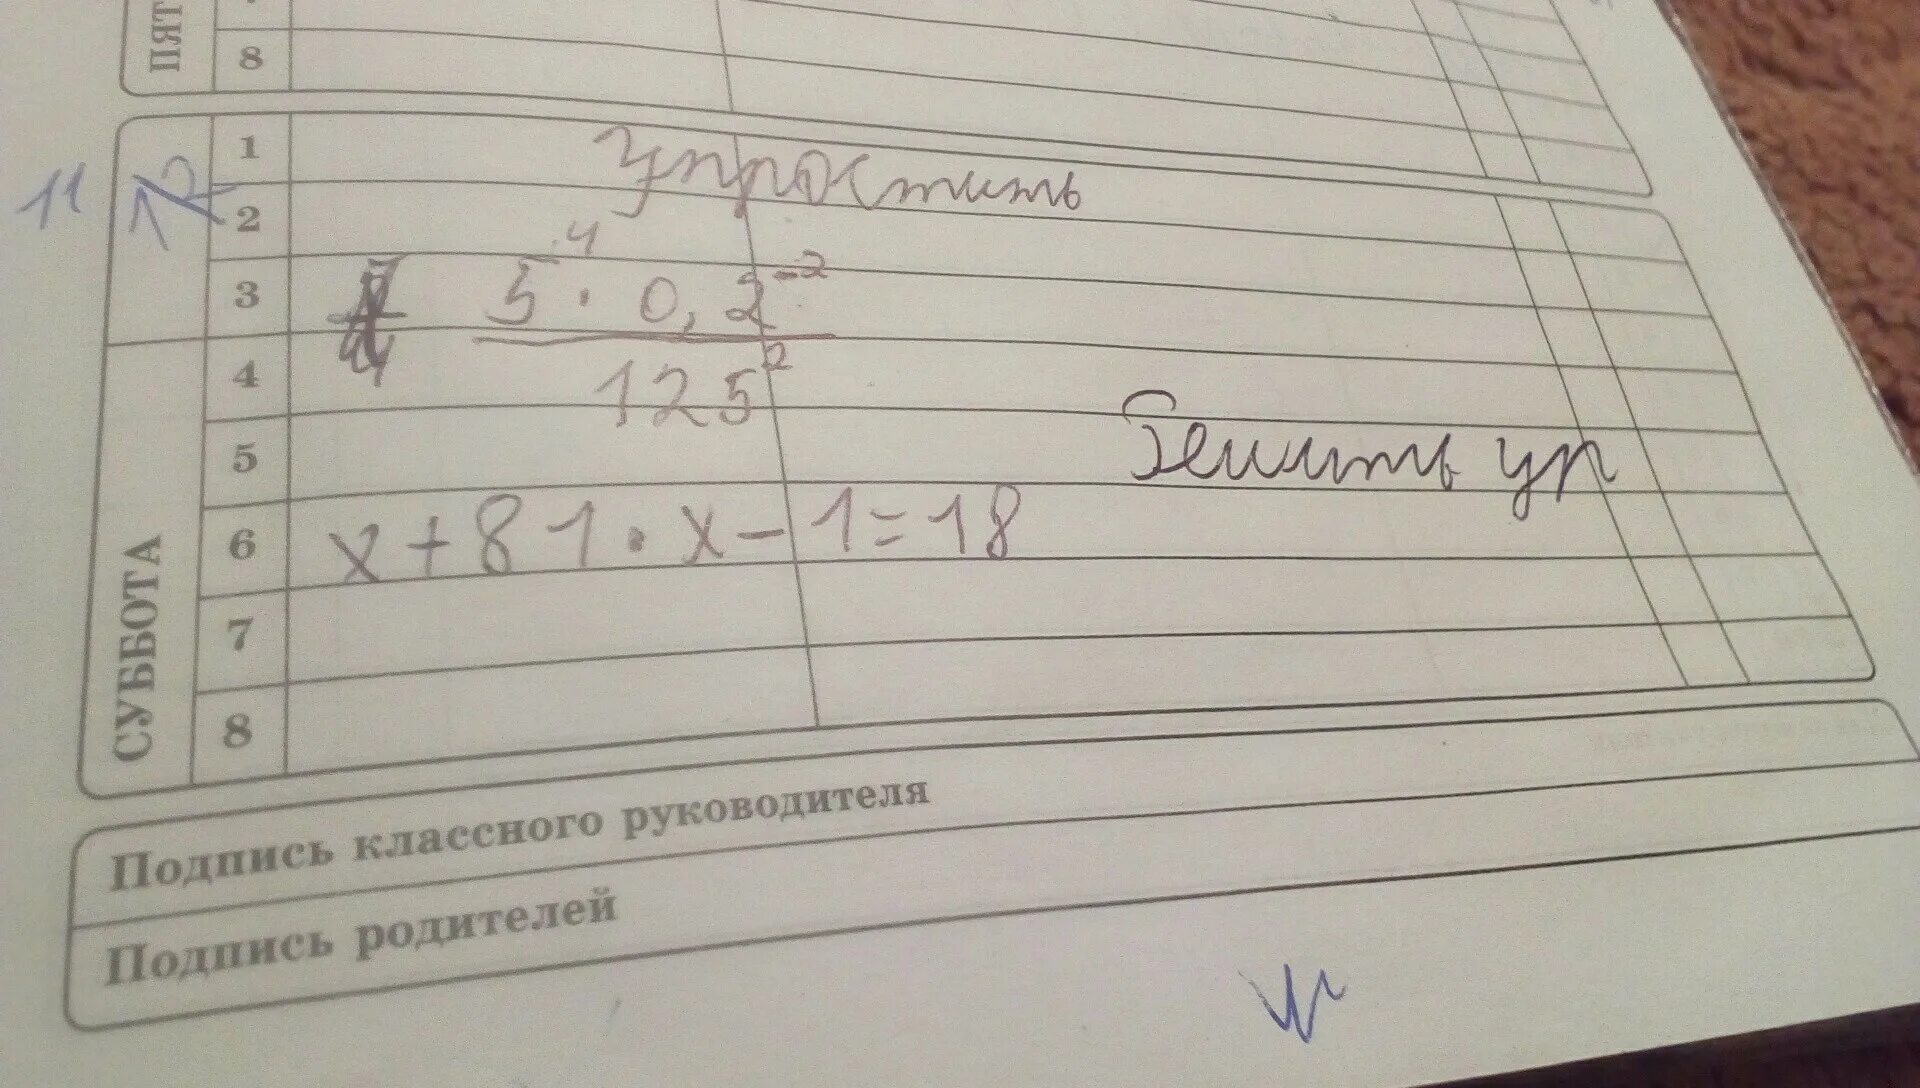 ПЯТ
8
1
Упростить
2
3 5⁴ · 0,2⁻²
4 125²
5 Решить ур
6 x + 81 · x - 1 = 18
7
8
СУББОТА
11
12
Подпись классного руководителя
Подпись родителей